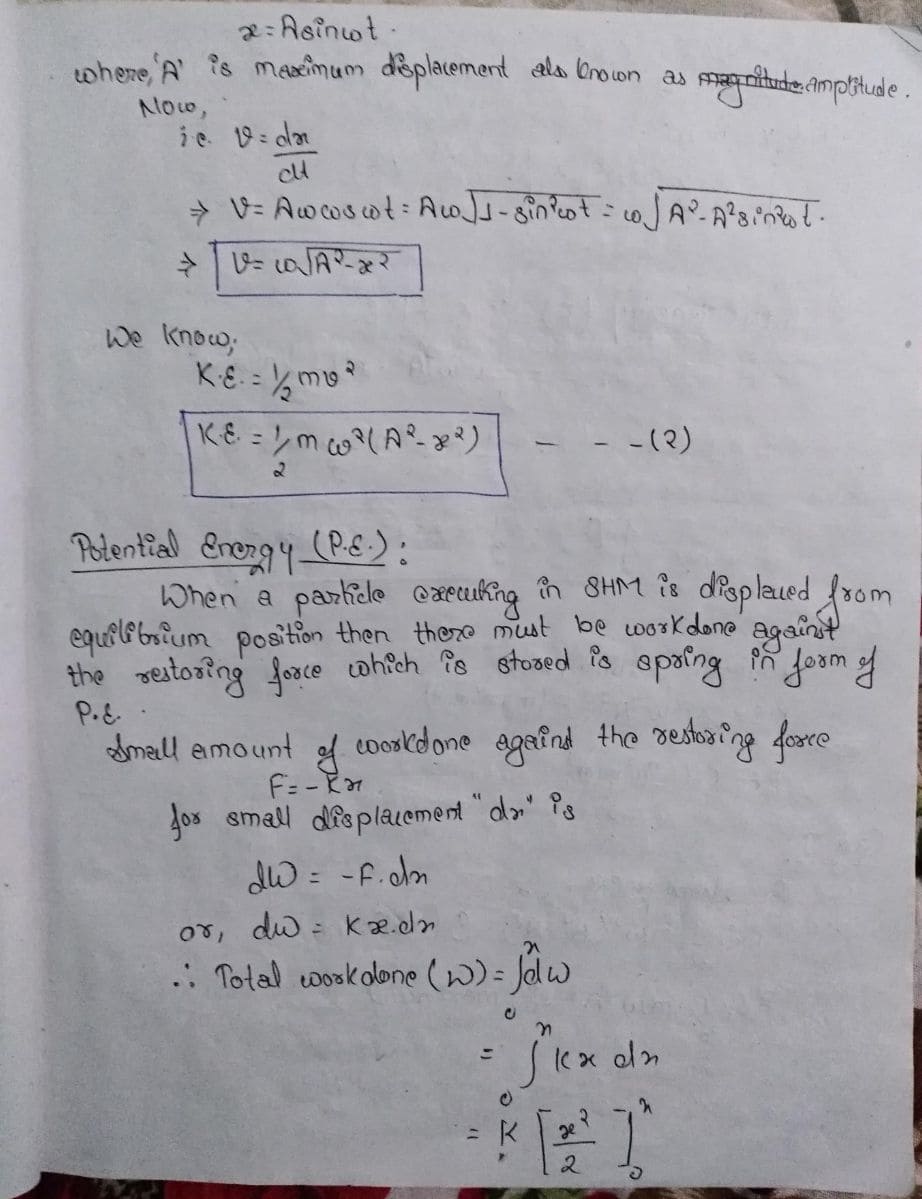 x = A sinωt.
where, 'A' is maximum displacement also known as magnitude amplitude.
Now,
i.e. v = dx/dt
⇒ v = Aω cos ωt = Aω√(1 - sin²ωt) = ω√(A² - A² sin²ωt).
⇒ v = ω√(A² - x²)
We know,
K.E. = 1/2 mv²
K.E. = 1/2 m ω² (A² - x²) - - - (2)
Potential Energy (P.E.) :
When a particle executing in SHM is displaced from
equilibrium position then there must be workdone against
the restoring force which is stored is spring in form of
P.E.
Small amount of workdone against the restoring force
F = - Kx
for small displacement "dx" is
dW = -F.dx
or, dw = Kx.dx
∴ Total workdone (W) = ∫₀ˣ dw
= ∫₀ˣ kx dx
= K [x²/2]₀ˣ